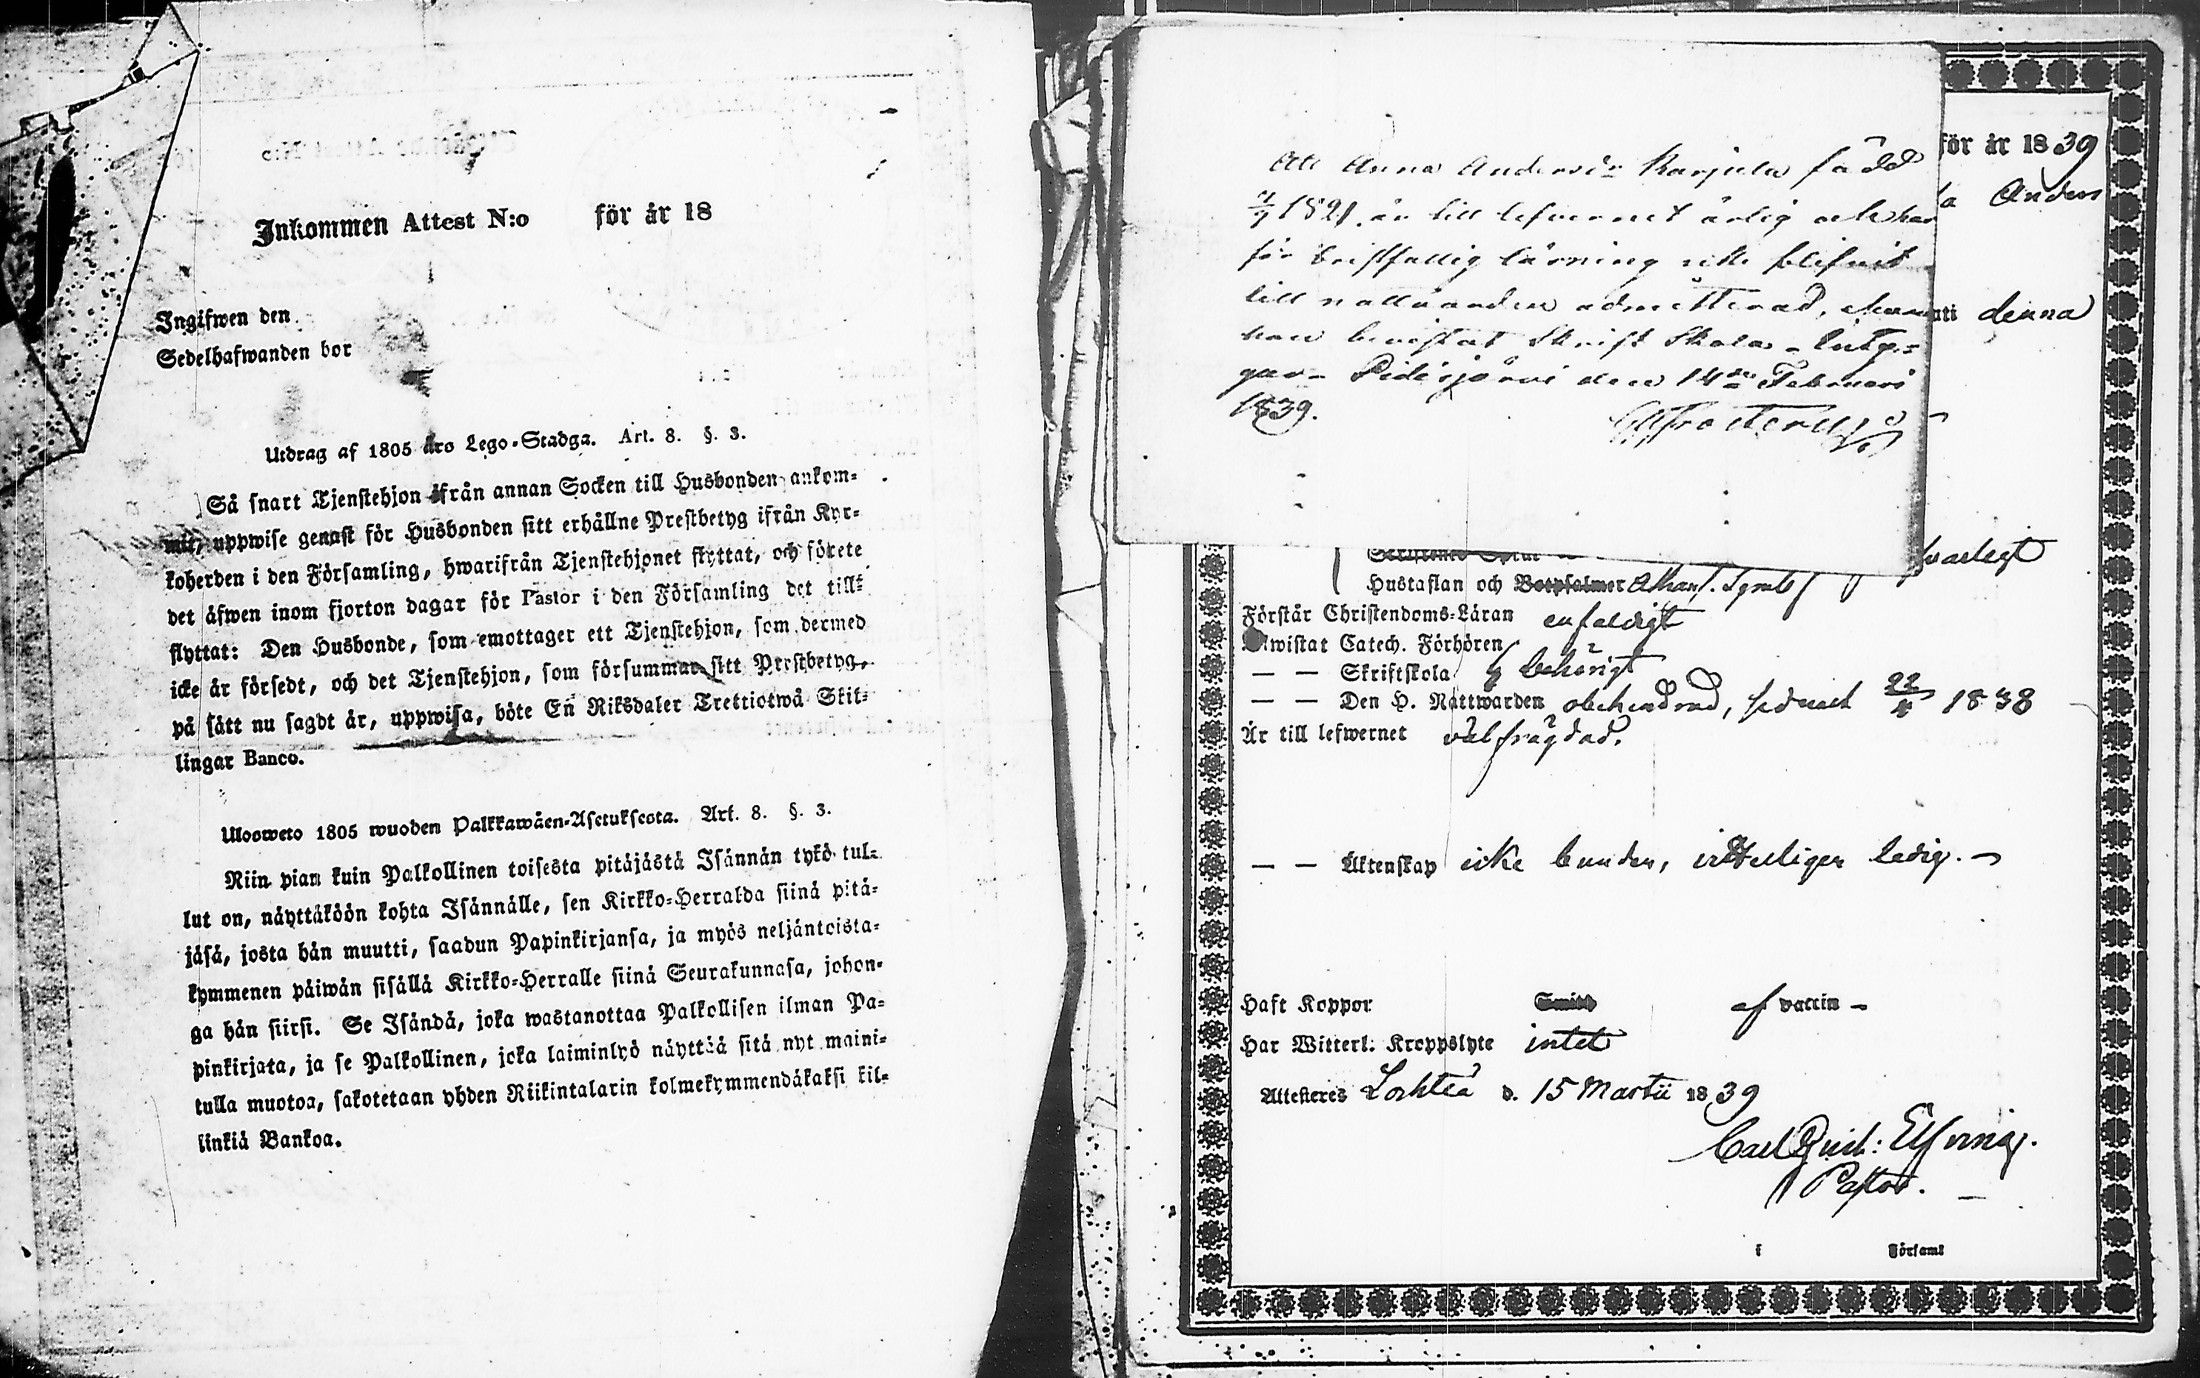 Inkommen Attest N:o för år 18
Ingifwen den
Sedelhafwanden bor
Utdrag af 1805 års Lego-Stadga. Art. 8. §. 3.
Så snart Tjenstehjon ifrån annan Socken till Husbonden ankom-
mit, uppwise genast för Husbonden sitt erhållne Prestbetyg ifrån Kyr-
koherden i den Församling, hwarifrån Tjenstehjonet flyttat, och förete
det äfwen inom fjorton dagar för Pastor i den Församling det till-
flyttat: Den Husbonde, som emottager ett Tjenstehjon, som dermed
icke är försedt, och det Tjenstehjon, som försummar sitt Prestbetyg,
på sätt nu sagdt är, uppwisa, böte En Riksdaler Trettiotwå Skil-
lingar Banco.
Ulosweto 1805 wuoden Palkkawäen-Asetuksesta. Art. 8. §. 3.
Niin pian kuin Palkollinen toisesta pitäjästä Isännän tykö tul-
lut on, näyttäköön kohta Isännälle, sen Kirkko-Herralda siinä pitä-
jäsä, josta hän muutti, saadun Papinkirjansa, ja myös neljäntoista-
kymmenen päiwän sisällä Kirkko-Herralle siinä Seurakunnasa, johon-
ga hän siirsi. Se Isändä, joka wastanottaa Palkollisen ilman Pa-
pinkirjata, ja se Palkollinen, joka laiminlyö näyttää sitä nyt maini-
tulla muotoa, sakotetaan yhden Riikintalarin kolmekymmendäkaksi kil-
linkiä Bankoa.
Att Anna Andersdr Karjula född
1821. är till lefvernet ärlig och har
för bristfällig läsning icke blifvit
till nattvarden admitterad,
hon bevistat Skrift Skolan. Inty-
gar. Pidisjärvi den 14de Februari
1839.
för år 1839
Anders
denna
Hustaflan och Botpsalmer Athan. Symb
Förstår Christendoms-Läran enfaldigt
Biwistat Catech. Förhören
— — Skriftskola behörigt
— — Den H. Nattwarden obehindrad, sednast 1838
Är till lefwernet välfrägdad.
— — Äktenskap icke bunden, witterligen ledig.
Haft Koppor Smitt af vaccin
Har Witterl. Kroppslyte intet
Attesteres Lochteå d. 15 Martii 1839
Carl Gust: Elfving.
Pastor.
i Församl